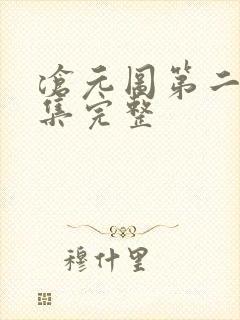 滄元圖第二
集完整
穆什里